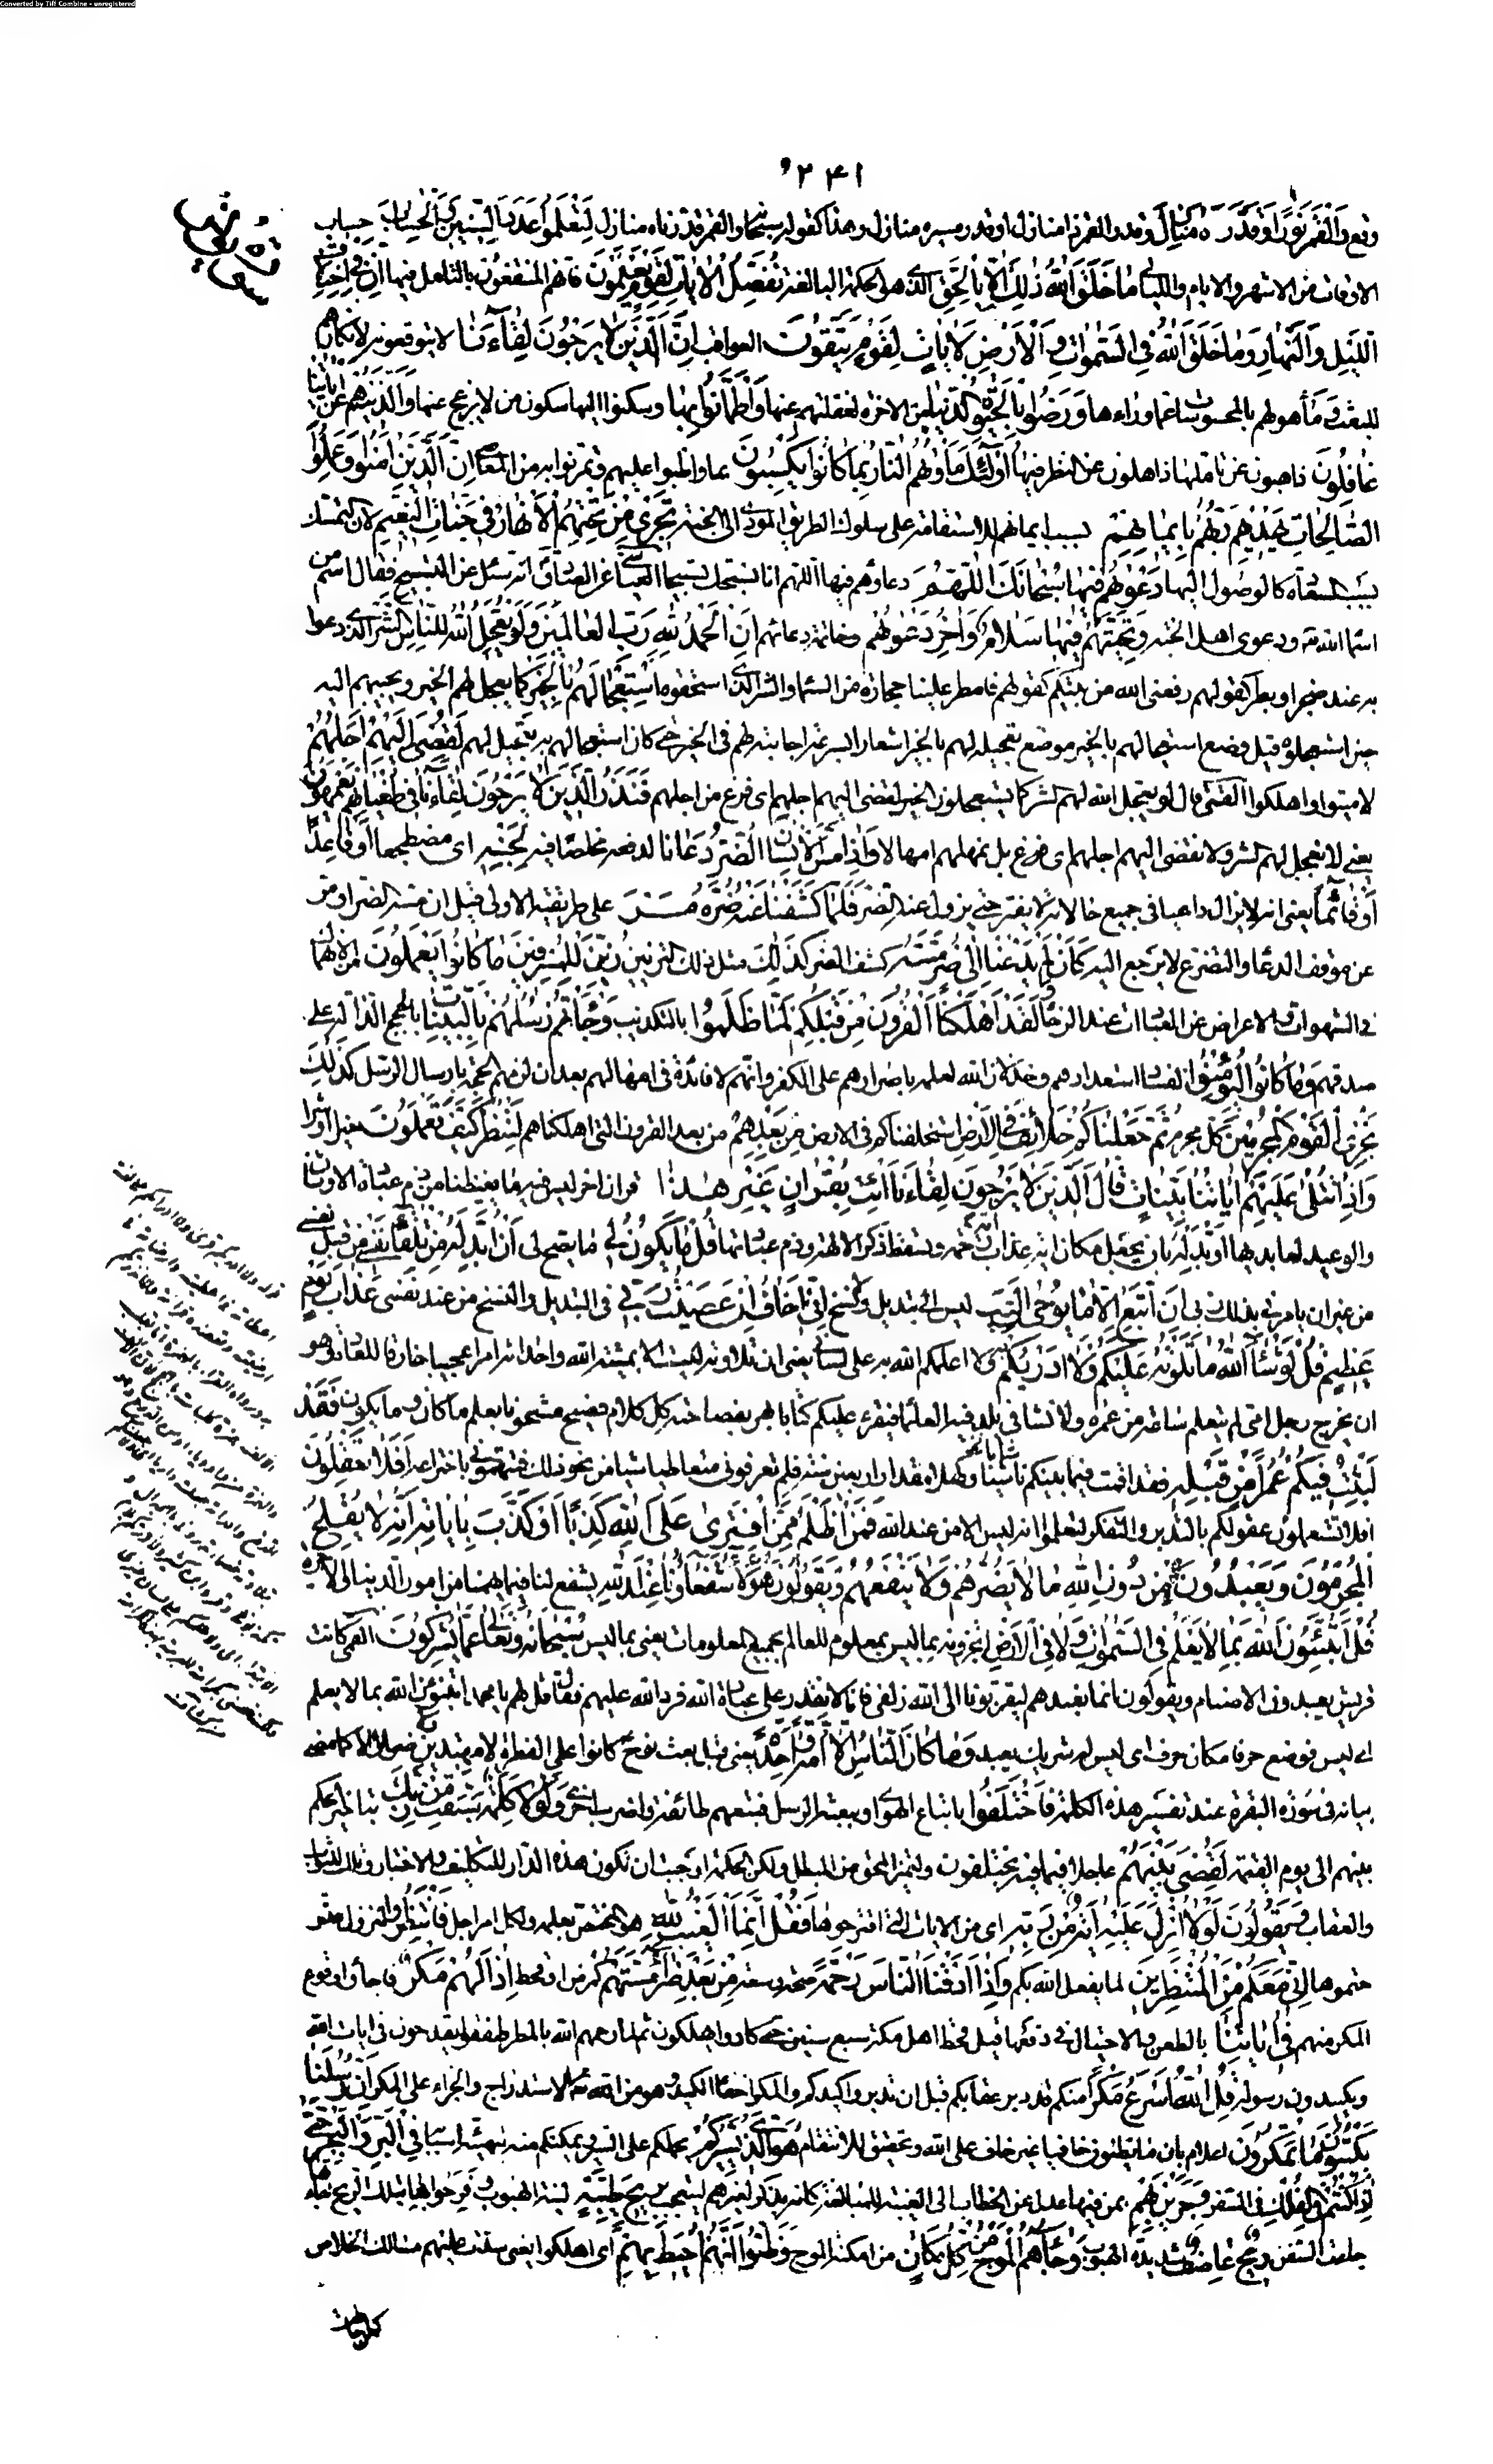 Converted by Tiff Combine - unregistered
۲۴۱
سورة يونس
وقع وَالْقَمَرَ نُورًا وَقَدَّرَهُ مَنَازِلَ وقدر القمر ذا منازل او قدر مسيره منازل وهذا كقوله سبحانه والقمر قدرناه منازل لِتَعْلَمُوا عَدَدَ السِّنِينَ وَالْحِسَابَ حساب
الاوقات من الاشهر والايام والليالي مَا خَلَقَ اللَّهُ ذَلِكَ إِلَّا بِالْحَقِّ الذي هو الحكمة البالغة نُفَصِّلُ الْآيَاتِ لِقَوْمٍ يَعْلَمُونَ فانهم المنتفعون بالتامل فيها إِنَّ فِي اخْتِلَافِ
اللَّيْلِ وَالنَّهَارِ وَمَا خَلَقَ اللَّهُ فِي السَّمَوَاتِ وَالْأَرْضِ لَآيَاتٍ لِقَوْمٍ يَتَّقُونَ العواقب إِنَّ الَّذِينَ لَا يَرْجُونَ لِقَاءَنَا لا يتوقعونه لانكارهم
للبعث وذهولهم بالمحسوسات عما وراءها وَرَضُوا بِالْحَيَوةِ الدُّنْيَا من الاخرة لغفلتهم عنها وَاطْمَأَنُّوا بِهَا وسكنوا اليها سكون من لا يزعج عنها وَالَّذِينَ هُمْ عَنْ آيَاتِنَا
غَافِلُونَ ذاهبون عن تاملها ذاهلون عن النظر فيها أُولَئِكَ مَأْوَاهُمُ النَّارُ بِمَا كَانُوا يَكْسِبُونَ بما واظبوا عليه وتمرنوا به من المعاصي إِنَّ الَّذِينَ آمَنُوا وَعَمِلُوا
الصَّالِحَاتِ يَهْدِيهِمْ رَبُّهُمْ بِإِيمَانِهِمْ بسبب ايمانهم للاستقامة على سلوك الطريق المؤدي الى الجنة تَجْرِي مِنْ تَحْتِهِمُ الْأَنْهَارُ فِي جَنَّاتِ النَّعِيمِ لان التمسك
بسبب السعادة كالوصول اليها دَعْوَاهُمْ فِيهَا سُبْحَانَكَ اللَّهُمَّ دعاؤهم فيها اللهم انا نسبحك تسبيحا العياشي عن الصادق انه سئل عن التسبيح فقال اسم من
اسماء الله ودعوى اهل الجنة وَتَحِيَّتُهُمْ فِيهَا سَلَامٌ وَآخِرُ دَعْوَاهُمْ وخاتمة دعائهم أَنِ الْحَمْدُ لِلَّهِ رَبِّ الْعَالَمِينَ وَلَوْ يُعَجِّلُ اللَّهُ لِلنَّاسِ الشَّرَّ الذي دعوا
به عند ضجر او بطر كقولهم رفعني الله من بينكم كقولهم فامطر علينا حجارة من السماء والشر الذي استحقوه اسْتِعْجَالَهُمْ بِالْخَيْرِ كما يعجل لهم الخير ويجيبهم اليه
حين استعجلوه قيل وضع استعجالهم بالخير موضع تعجيله لهم بالخير اشعار السرعة اجابته لهم في الخير حتى كان استعجالهم به تعجيل لهم لَقُضِيَ إِلَيْهِمْ أَجَلُهُمْ
لاميتوا واهلكوا القمي قال لو يعجل الله لهم الشر كما يستعجلون الخير لقضى اليهم اجلهم اي فرغ من اجلهم فَنَذَرُ الَّذِينَ لَا يَرْجُونَ لِقَاءَنَا فِي طُغْيَانِهِمْ يَعْمَهُونَ
يعني لا نعجل لهم الشر ولا نقضي اليهم اجلهم اي فرغ بل نمهلهم امهالا وَإِذَا مَسَّ الْإِنْسَانَ الضُّرُّ دَعَانَا لدفعه مخلصا فيه لِجَنْبِهِ اي مضطجعا أَوْ قَاعِدًا
أَوْ قَائِمًا يعني انه لا يزال داعيا في جميع حالاته لا يفتر حتى يزول عنه الضر فَلَمَّا كَشَفْنَا عَنْهُ ضُرَّهُ مَرَّ على طريقته الاولى قبل ان مسه الضر او مر
عن موقف الدعاء والتضرع لا يرجع اليه كَأَنْ لَمْ يَدْعُنَا إِلَى ضُرٍّ مَسَّهُ كشف الضر كَذَلِكَ مثل ذلك التزيين زُيِّنَ لِلْمُسْرِفِينَ مَا كَانُوا يَعْمَلُونَ من الانهماك
في الشهوات والاعراض عن العبادات عند الرخاء وَلَقَدْ أَهْلَكْنَا الْقُرُونَ مِنْ قَبْلِكُمْ لَمَّا ظَلَمُوا بالتكذيب وَجَاءَتْهُمْ رُسُلُهُمْ بِالْبَيِّنَاتِ بالحجج الدالة على
صدقهم وَمَا كَانُوا لِيُؤْمِنُوا لفساد استعدادهم وخذلان الله لعلمه باصرارهم على الكفر وانهم لا فائدة في امهالهم بعد ان لزمهم الحجة بارسال الرسل كَذَلِكَ
نَجْزِي الْقَوْمَ الْمُجْرِمِينَ كل مجرم ثُمَّ جَعَلْنَاكُمْ خَلَائِفَ فِي الْأَرْضِ استخلفناكم في الارض مِنْ بَعْدِهِمْ من بعد القرون التي اهلكناهم لِنَنْظُرَ كَيْفَ تَعْمَلُونَ خيرا او شرا
وَإِذَا تُتْلَى عَلَيْهِمْ آيَاتُنَا بَيِّنَاتٍ قَالَ الَّذِينَ لَا يَرْجُونَ لِقَاءَنَا ائْتِ بِقُرْآنٍ غَيْرِ هَذَا قران اخر ليس فيه ما يغيظنا من ذم عبادة الاوثان
والوعيد لعابديها أَوْ بَدِّلْهُ بان يجعل مكان اية عذاب اية رحمة ويسقط ذكر الالهة وذم عبادتها قُلْ مَا يَكُونُ لِي ما يصح لي أَنْ أُبَدِّلَهُ مِنْ تِلْقَاءِ نَفْسِي من قبل نفسي
من غير ان يامرني بذلك ربي إِنْ أَتَّبِعُ إِلَّا مَا يُوحَى إِلَيَّ ليس الي تبديل ولا نسخ إِنِّي أَخَافُ إِنْ عَصَيْتُ رَبِّي في التبديل والنسخ من عند نفسي عَذَابَ يَوْمٍ
عَظِيمٍ قُلْ لَوْ شَاءَ اللَّهُ مَا تَلَوْتُهُ عَلَيْكُمْ وَلَا أَدْرَاكُمْ بِهِ ولا اعلمكم الله به على لساني يعني ان تلاوته ليست الا بمشية الله واحداثه امرا عجيبا خارقا للعادة وهو
ان يخرج رجل امي لم يتعلم ساعة من عمره ولا نشا في بلد فيه العلماء فيقرء عليكم كتابا بهر بفصاحته كل كلام فصيح مشحونا بعلم ما كان وما يكون فَقَدْ
لَبِثْتُ فِيكُمْ عُمُرًا مِنْ قَبْلِهِ فقد اقمت فيما بينكم ناشيا وكهلا مقدار اربعين سنة فلم تعرفوني متعاطيا شيئا من نحو ذلك فتتهموني باختراعه أَفَلَا تَعْقِلُونَ
افلا تستعملون عقولكم بالتدبر والتفكر لتعلموا انه ليس الا من عند الله فَمَنْ أَظْلَمُ مِمَّنِ افْتَرَى عَلَى اللَّهِ كَذِبًا أَوْ كَذَّبَ بِآيَاتِهِ إِنَّهُ لَا يُفْلِحُ
الْمُجْرِمُونَ وَيَعْبُدُونَ مِنْ دُونِ اللَّهِ مَا لَا يَضُرُّهُمْ وَلَا يَنْفَعُهُمْ وَيَقُولُونَ هَؤُلَاءِ شُفَعَاؤُنَا عِنْدَ اللَّهِ يشفع لنا فيما يهمنا من امور الدنيا والاخرة
قُلْ أَتُنَبِّئُونَ اللَّهَ بِمَا لَا يَعْلَمُ فِي السَّمَوَاتِ وَلَا فِي الْأَرْضِ اتخبرونه بما ليس بمعلوم للعالم بجميع المعلومات يعني بما ليس سُبْحَانَهُ وَتَعَالَى عَمَّا يُشْرِكُونَ القمي كانت
قريش يعبدون الاصنام ويقولون انما نعبدهم ليقربونا الى الله زلفى فانا لا نقدر على عبادة الله فرد الله عليهم فقال قل لهم يا محمد اتنبئون الله بما لا يعلم
اي ليس فوضع حرفا مكان حرف اي ليس له شريك يعبد وَمَا كَانَ النَّاسُ إِلَّا أُمَّةً وَاحِدَةً يعني قبل بعث نوح كانوا على الفطرة لا مهتدين ولا ضلالا كما مضى
بيانه في سورة البقرة عند تفسير هذه الكلمة فَاخْتَلَفُوا باتباع الهوى او ببعثة الرسل فتبعهم طائفة واصرت اخرى وَلَوْلَا كَلِمَةٌ سَبَقَتْ مِنْ رَبِّكَ بتاخير الحكم
بينهم الى يوم القيمة لَقُضِيَ بَيْنَهُمْ عاجلا فِيمَا فِيهِ يَخْتَلِفُونَ ولتميز المحق من المبطل ولكن الحكمة اوجبت ان تكون هذه الدار للتكليف والاختبار وتلك للثواب
والعقاب وَيَقُولُونَ لَوْلَا أُنْزِلَ عَلَيْهِ آيَةٌ مِنْ رَبِّهِ اي من الايات التي اقترحوها فَقُلْ إِنَّمَا الْغَيْبُ لِلَّهِ هو المختص بعلمه ولكل امر اجل فَانْتَظِرُوا لنزول ما
اقترحتموها إِنِّي مَعَكُمْ مِنَ الْمُنْتَظِرِينَ لما يفعل الله بكم وَإِذَا أَذَقْنَا النَّاسَ رَحْمَةً صحة وسعة مِنْ بَعْدِ ضَرَّاءَ مَسَّتْهُمْ كمرض او قحط إِذَا لَهُمْ مَكْرٌ فاجأوا وقوع
المكر منهم فِي آيَاتِنَا بالطعن والاحتيال في دفعها قيل قحط اهل مكة سبع سنين حتى كادوا يهلكون ثم لما رحمهم الله بالمطر طفقوا يقدحون في ايات الله
ويكيدون رسوله قُلِ اللَّهُ أَسْرَعُ مَكْرًا منكم قد دبر عقابكم قبل ان تدبروا كيدكم والمكر اخفاء الكيد وهو من الله الاستدراج والجزاء على المكر إِنَّ رُسُلَنَا
يَكْتُبُونَ مَا تَمْكُرُونَ اعلام بان ما يظنونه خافيا غير خاف على الله وتحقيق للانتقام هُوَ الَّذِي يُسَيِّرُكُمْ يحملكم على السير ويمكنكم منه بتهيئة اسبابه فِي الْبَرِّ وَالْبَحْرِ حَتَّى
إِذَا كُنْتُمْ فِي الْفُلْكِ في السفن وَجَرَيْنَ بِهِمْ بمن فيها عدل عن الخطاب الى الغيبة للمبالغة كانه يذكر لغيرهم ليتعجب بِرِيحٍ طَيِّبَةٍ لينة الهبوب وَفَرِحُوا بِهَا بتلك الريح جَاءَتْهَا
جاءت السفن رِيحٌ عَاصِفٌ شديدة الهبوب وَجَاءَهُمُ الْمَوْجُ مِنْ كُلِّ مَكَانٍ من امكنة الموج وَظَنُّوا أَنَّهُمْ أُحِيطَ بِهِمْ اي اهلكوا يعني سدت عليهم مسالك الخلاص